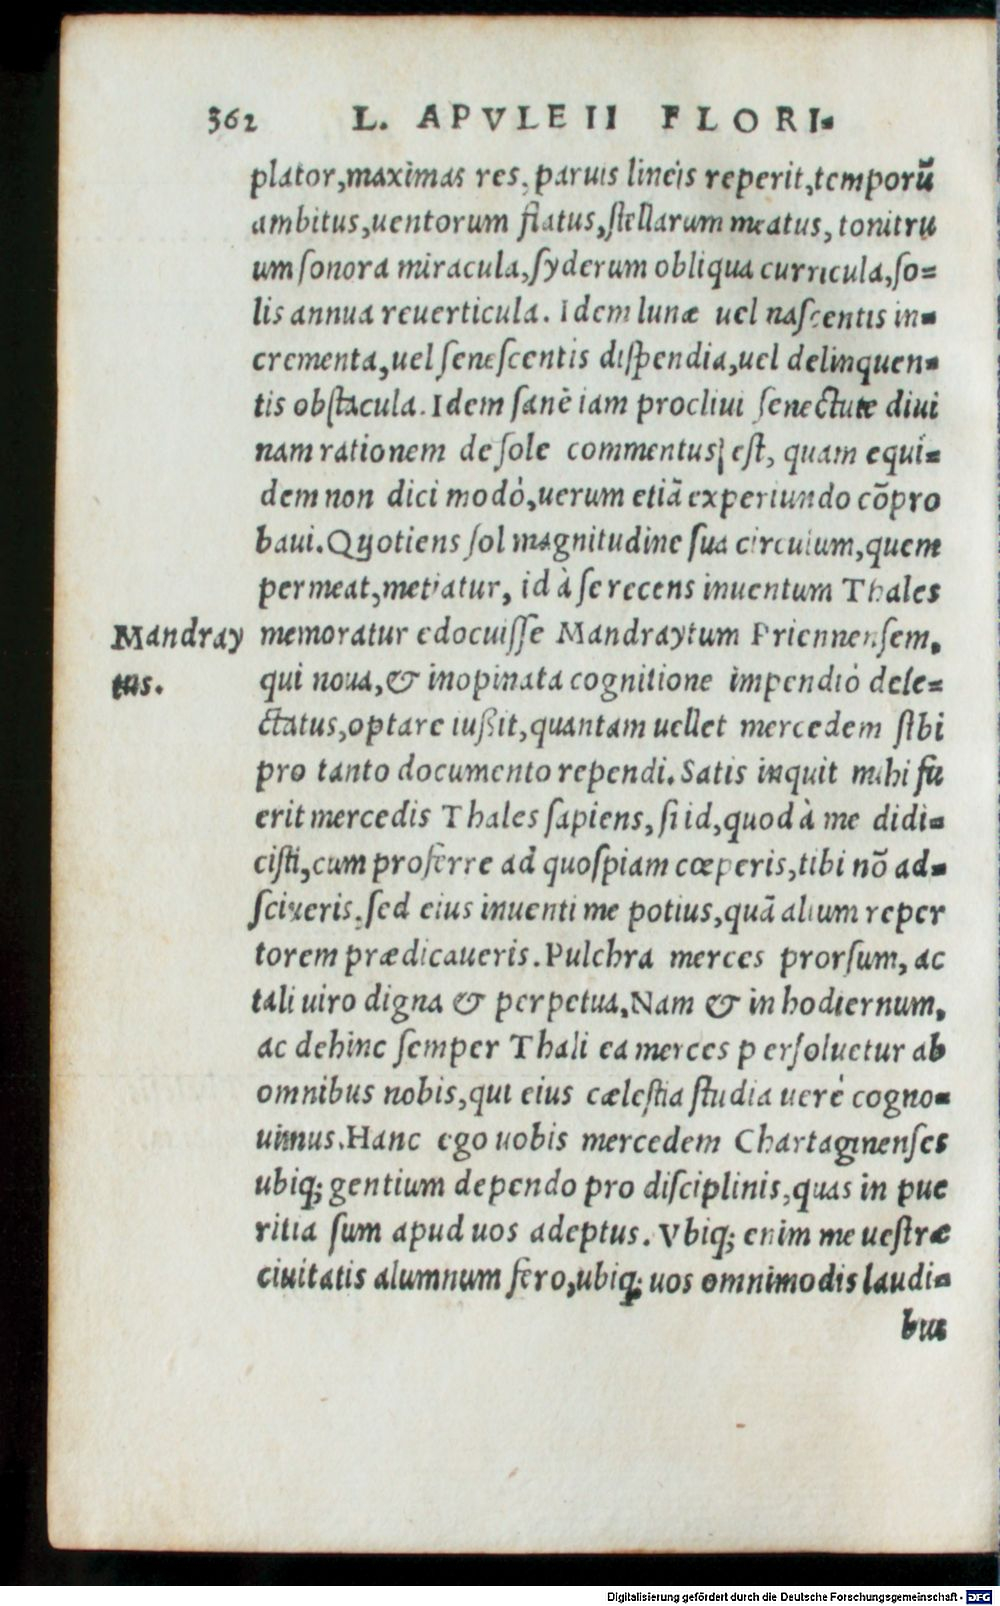 362 L. APVLEII FLORI-
plator, maximas res, paruis lineis reperit, temporũ
ambitus, uentorum flatus, ſtellarum meatus, tonitru
um ſonora miracula, ſyderum obliqua curricula, ſo=
lis annua reuerticula. Idem lunæ uel naſcentis in=
crementa, uel ſeneſcentis diſpendia, uel delinquen=
tis obſtacula. Idem ſanè iam procliui ſenectute diui
nam rationem de ſole commentus eſt, quam equi=
dem non dici modò, uerum etiã experiundo cõpro
baui. Quotiens ſol magnitudine ſua circulum, quem
permeat, metiatur, id à ſe recens inuentum Thales
Mandray memoratur edocuiſſe Mandraytum Priennenſem,
tus. qui noua, & inopinata cognitione impendiò dele=
ctatus, optare iußit, quantam uellet mercedem ſibi
pro tanto documento rependi. Satis inquit mihi fu
erit mercedis Thales ſapiens, ſi id, quod à me didi=
ciſti, cum proferre ad quoſpiam cœperis, tibi nõ ad=
ſciueris, ſed eius inuenti me potius, quã alium reper
torem prædicaueris. Pulchra merces prorſum, ac
tali uiro digna & perpetua. Nam & in hodiernum,
ac dehinc ſemper Thali ea merces perſoluetur ab
omnibus nobis, qui eius cæleſtia ſtudia uerè cogno=
uimus. Hanc ego uobis mercedem Chartaginenſes
ubiq; gentium dependo pro diſciplinis, quas in pue
ritia ſum apud uos adeptus. Vbiq; enim me ueſtræ
ciuitatis alumnum fero, ubiq; uos omnimodis laudi=
bus
Digitalisierung gefördert durch die Deutsche Forschungsgemeinschaft - DFG